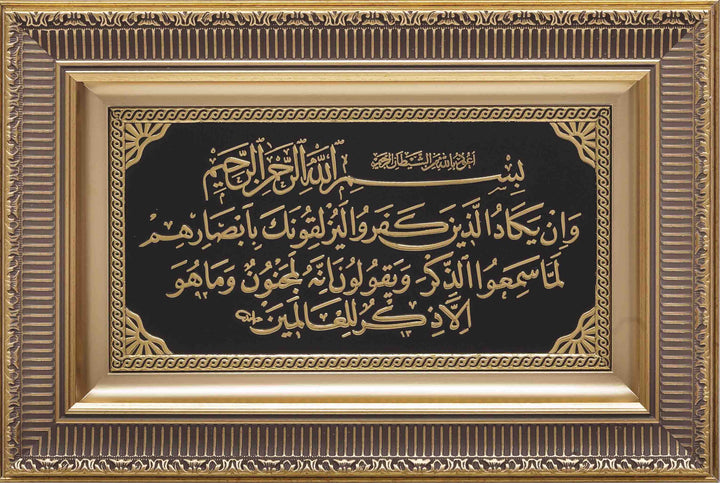 أعوذ بالله من الشيطان الرجيم
بِسْمِ اللهِ الرَّحْمٰنِ الرَّحِيمِ
وَاِنْ يَكَادُ الَّذِينَ كَفَرُوا لَيُزْلِقُونَكَ بِاَبْصَارِهِمْ
لَمَّا سَمِعُوا الذِّكْرَ وَيَقُولُونَ اِنَّهُ لَمَجْنُونٌ وَمَا هُوَ
اِلَّا ذِكْرٌ لِلْعَالَمِينَ